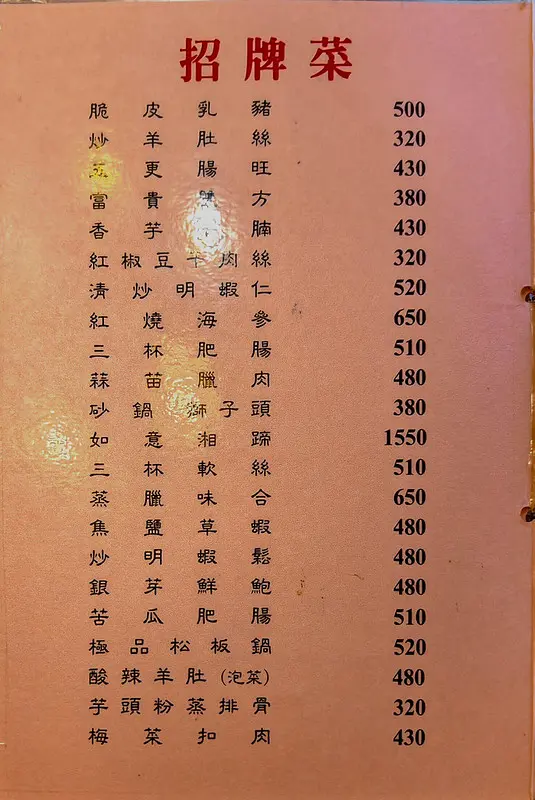 招牌菜
脆皮乳豬 500
炒羊肚絲 320
五更腸旺 430
富貴雙方 380
香芋腩 430
紅椒豆干肉絲 320
清炒明蝦仁 520
紅燒海參 650
三杯肥腸 510
蒜苗臘肉 480
砂鍋獅子頭 380
如意湘蹄 1550
三杯軟絲 510
蒸臘味合 650
焦鹽草蝦 480
炒明蝦鬆 480
銀芽鮮鮑 480
苦瓜肥腸 510
極品松板鍋 520
酸辣羊肚(泡菜) 480
芋頭粉蒸排骨 320
梅菜扣肉 430